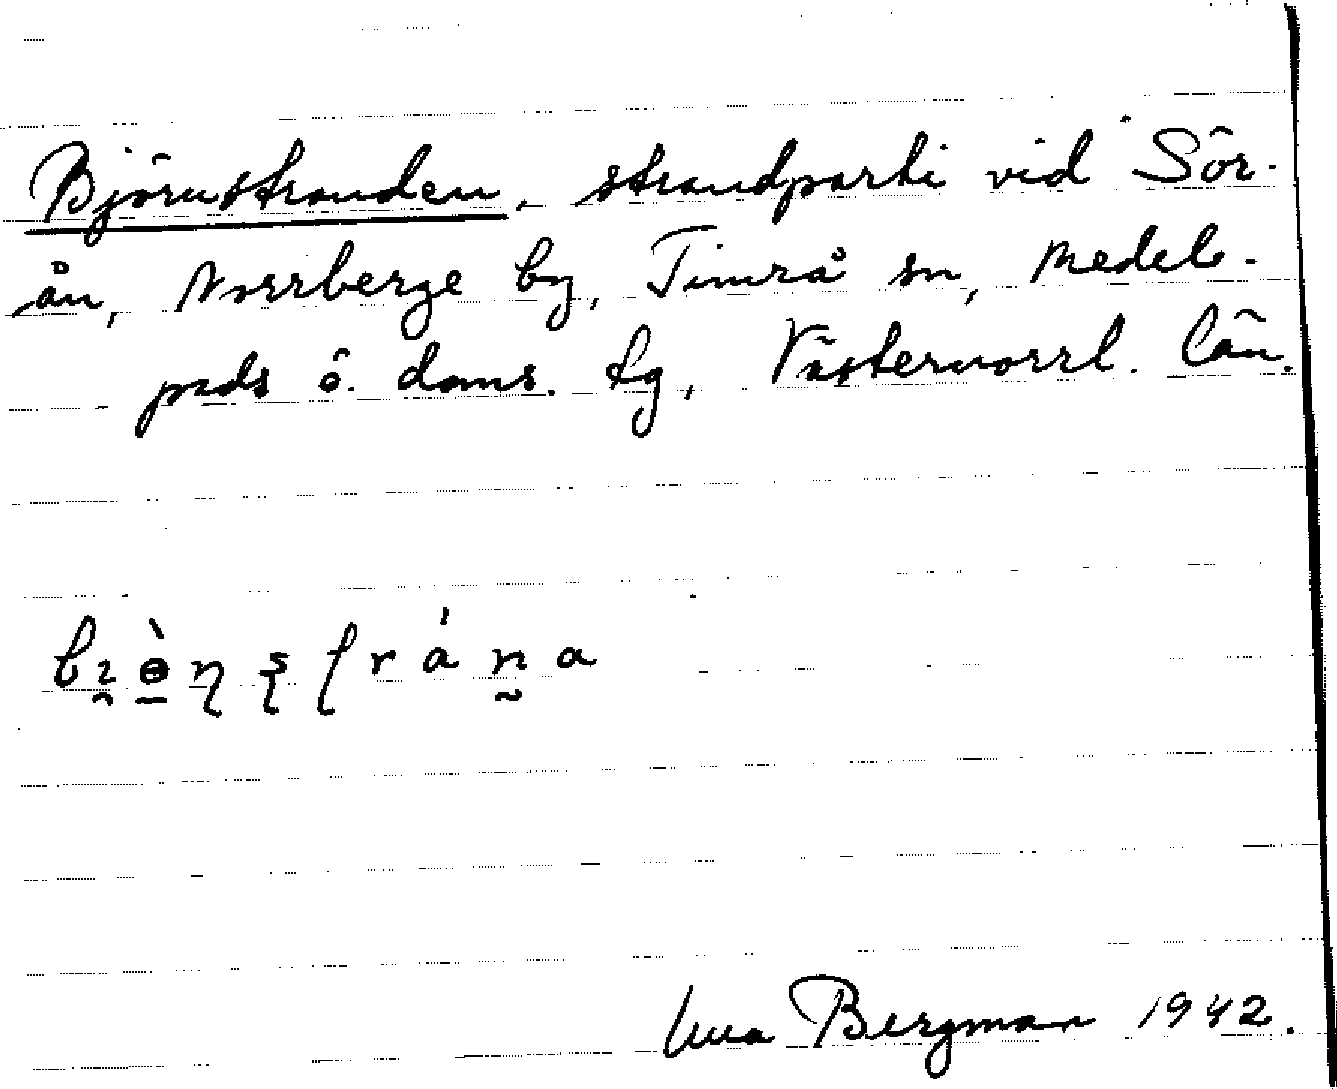 Björnstranden, strandparti vid Sör-
ån, Norrberge by, Timrå sn, Medel-
pads ö. doms. tg, Västernorrl. län.
bɪ̯ɵ̠̀ɳʂʈrán̰a
Bergman 1942.